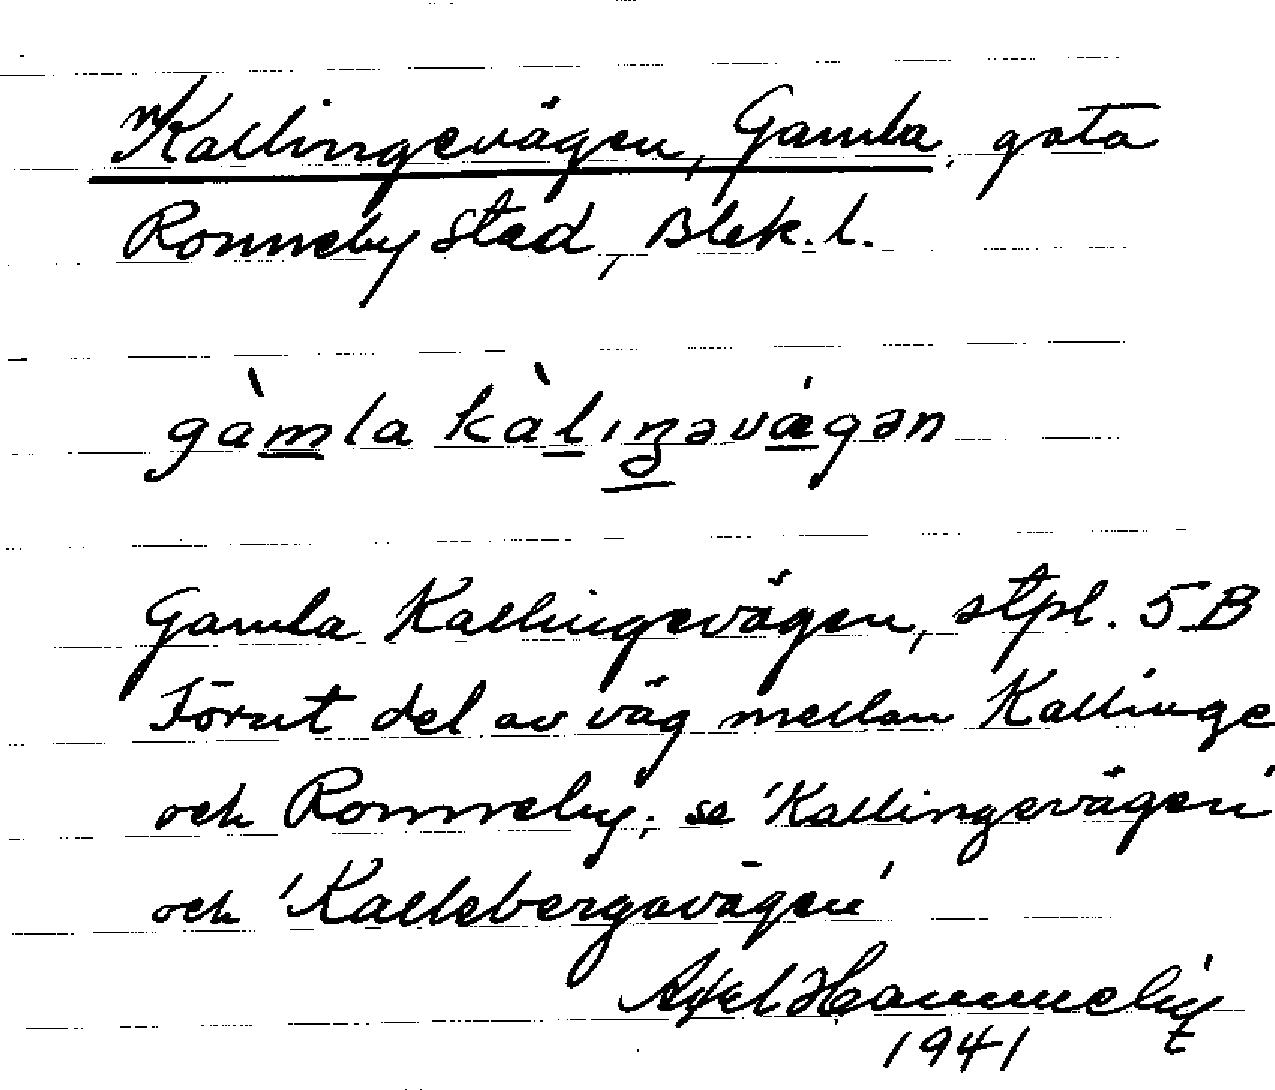 Kallingevägen, Gamla, gata
Ronneby stad, Blek. l.
gàmla kàlıŋəvǽgən
Gamla Kallingevägen, stpl. 5 B
Förut del av väg mellan Kallinge
och Ronneby; se 'Kallingevägen'
och 'Kallebergavägen'
Axel
1941